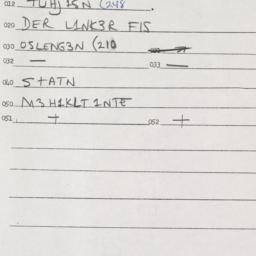 012 TUHJ15N (248 .
020 DER L1NK3R FIS
030 OSLENG3N (210
032 — 033 —
040 STATN
050 M3H1KLT 1NTE
051 + 052 +